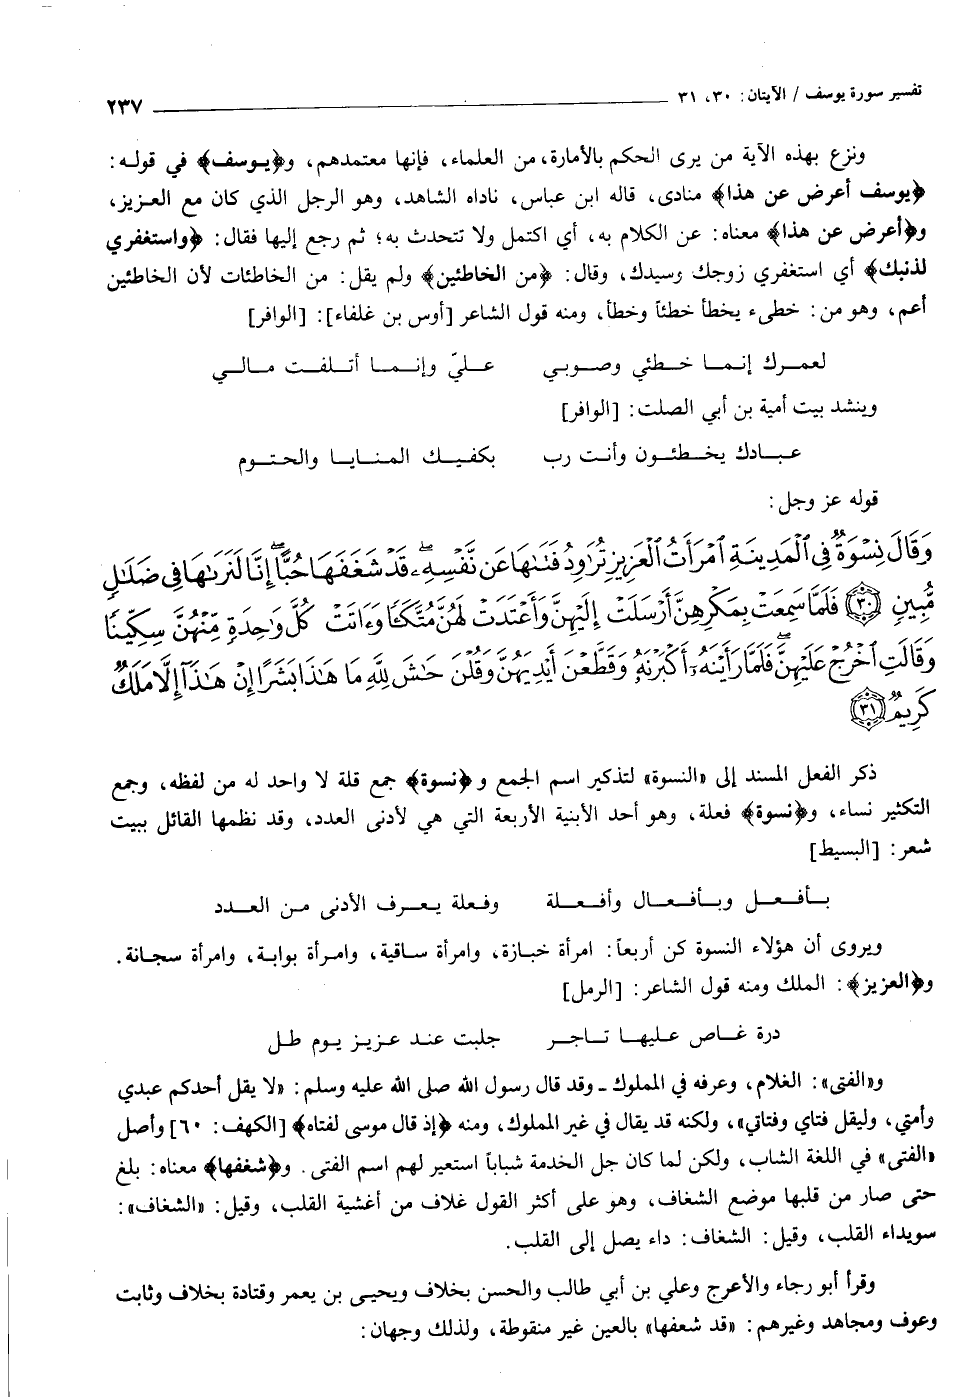 تفسير سورة يوسف / الآيتان: ٣٠، ٣١ ٢٣٧
ونزع بهذه الآية من يرى الحكم بالأمارة، من العلماء، فإنها معتمدهم، و﴿يوسف﴾ في قوله:
﴿يوسف أعرض عن هذا﴾ منادى، قاله ابن عباس، ناداه الشاهد، وهو الرجل الذي كان مع العزيز،
و﴿أعرض عن هذا﴾ معناه: عن الكلام به، أي اكتمل ولا تتحدث به؛ ثم رجع إليها فقال: ﴿واستغفري
لذنبك﴾ أي استغفري زوجك وسيدك، وقال: ﴿من الخاطئين﴾ ولم يقل: من الخاطئات لأن الخاطئين
أعم، وهو من: خطىء يخطأ خطئاً وخطأ، ومنه قول الشاعر [أوس بن غلفاء]: [الوافر]
لعمرك إنما خطئي وصوبي عليّ وإنما أتلفت مالي
وينشد بيت أمية بن أبي الصلت: [الوافر]
عبادك يخطئون وأنت رب بكفيك المنايا والحتوم
قوله عز وجل:
وَقَالَ نِسْوَةٌ فِي الْمَدِينَةِ امْرَأَتُ الْعَزِيزِ تُرَاوِدُ فَتَىٰهَا عَن نَّفْسِهِ ۖ قَدْ شَغَفَهَا حُبًّا ۖ إِنَّا لَنَرَىٰهَا فِي ضَلَٰلٍ
مُّبِينٍ ﴿٣٠﴾ فَلَمَّا سَمِعَتْ بِمَكْرِهِنَّ أَرْسَلَتْ إِلَيْهِنَّ وَأَعْتَدَتْ لَهُنَّ مُتَّكَـًٔا وَءَاتَتْ كُلَّ وَٰحِدَةٍ مِّنْهُنَّ سِكِّينًا
وَقَالَتِ اخْرُجْ عَلَيْهِنَّ ۖ فَلَمَّا رَأَيْنَهُۥٓ أَكْبَرْنَهُۥ وَقَطَّعْنَ أَيْدِيَهُنَّ وَقُلْنَ حَٰشَ لِلَّهِ مَا هَٰذَا بَشَرًا إِنْ هَٰذَآ إِلَّا مَلَكٌ
كَرِيمٌ ﴿٣١﴾
ذكر الفعل المسند إلى «النسوة» لتذكير اسم الجمع و﴿نسوة﴾ جمع قلة لا واحد له من لفظه، وجمع
التكثير نساء، و﴿نسوة﴾ فعلة، وهو أحد الأبنية الأربعة التي هي لأدنى العدد، وقد نظمها القائل ببيت
شعر: [البسيط]
بأفعل وبأفعال وأفعلة وفعلة يعرف الأدنى من العدد
ويروى أن هؤلاء النسوة كن أربعاً: امرأة خبازة، وامرأة ساقية، وامرأة بوابة، وامرأة سجانة.
و﴿العزيز﴾: الملك ومنه قول الشاعر: [الرمل]
درة غاص عليها تاجر جلبت عند عزيز يوم طل
و«الفتى»: الغلام، وعرفه في المملوك ـ وقد قال رسول الله صلى الله عليه وسلم: «لا يقل أحدكم عبدي
وأمتي، وليقل فتاي وفتاتي»، ولكنه قد يقال في غير المملوك، ومنه ﴿إذ قال موسى لفتاه﴾ [الكهف: ٦٠] وأصل
«الفتى» في اللغة الشاب، ولكن لما كان جل الخدمة شباباً استعير لهم اسم الفتى. و﴿شغفها﴾ معناه: بلغ
حتى صار من قلبها موضع الشغاف، وهو على أكثر القول غلاف من أغشية القلب، وقيل: «الشغاف»:
سويداء القلب، وقيل: الشغاف: داء يصل إلى القلب.
وقرأ أبو رجاء والأعرج وعلي بن أبي طالب والحسن بخلاف ويحيى بن يعمر وقتادة بخلاف وثابت
وعوف ومجاهد وغيرهم: «قد شعفها» بالعين غير منقوطة، ولذلك وجهان: